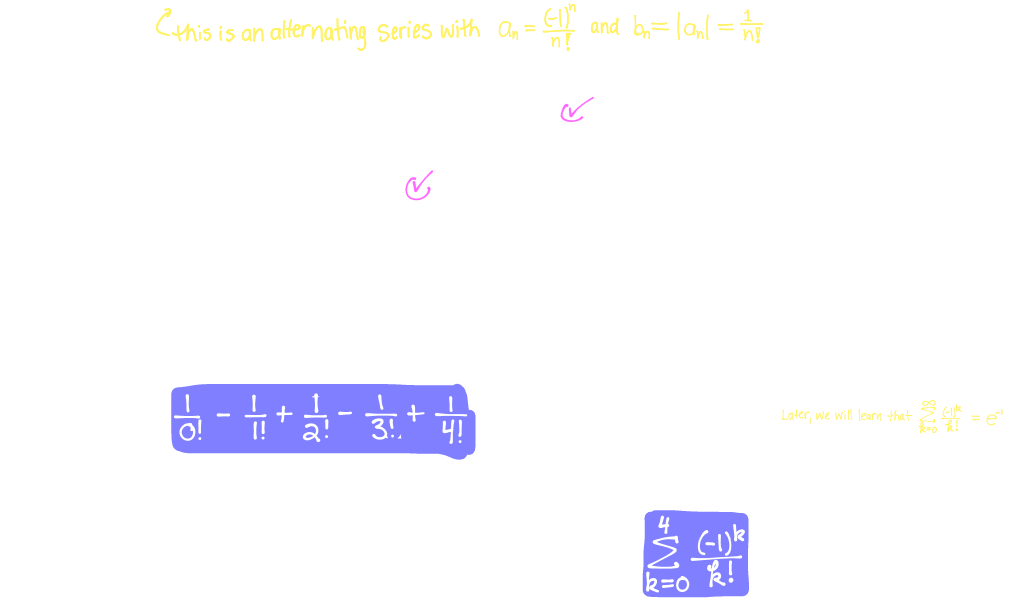 this is an alternating series with aₙ = (-1)ⁿ/n! and bₙ = |aₙ| = 1/n!
1/0! - 1/1! + 1/2! - 1/3! + 1/4!
Later, we will learn that ∑_{k=0}^{∞} (-1)^k/k! = e^{-1}
∑_{k=0}^{4} (-1)^k/k!